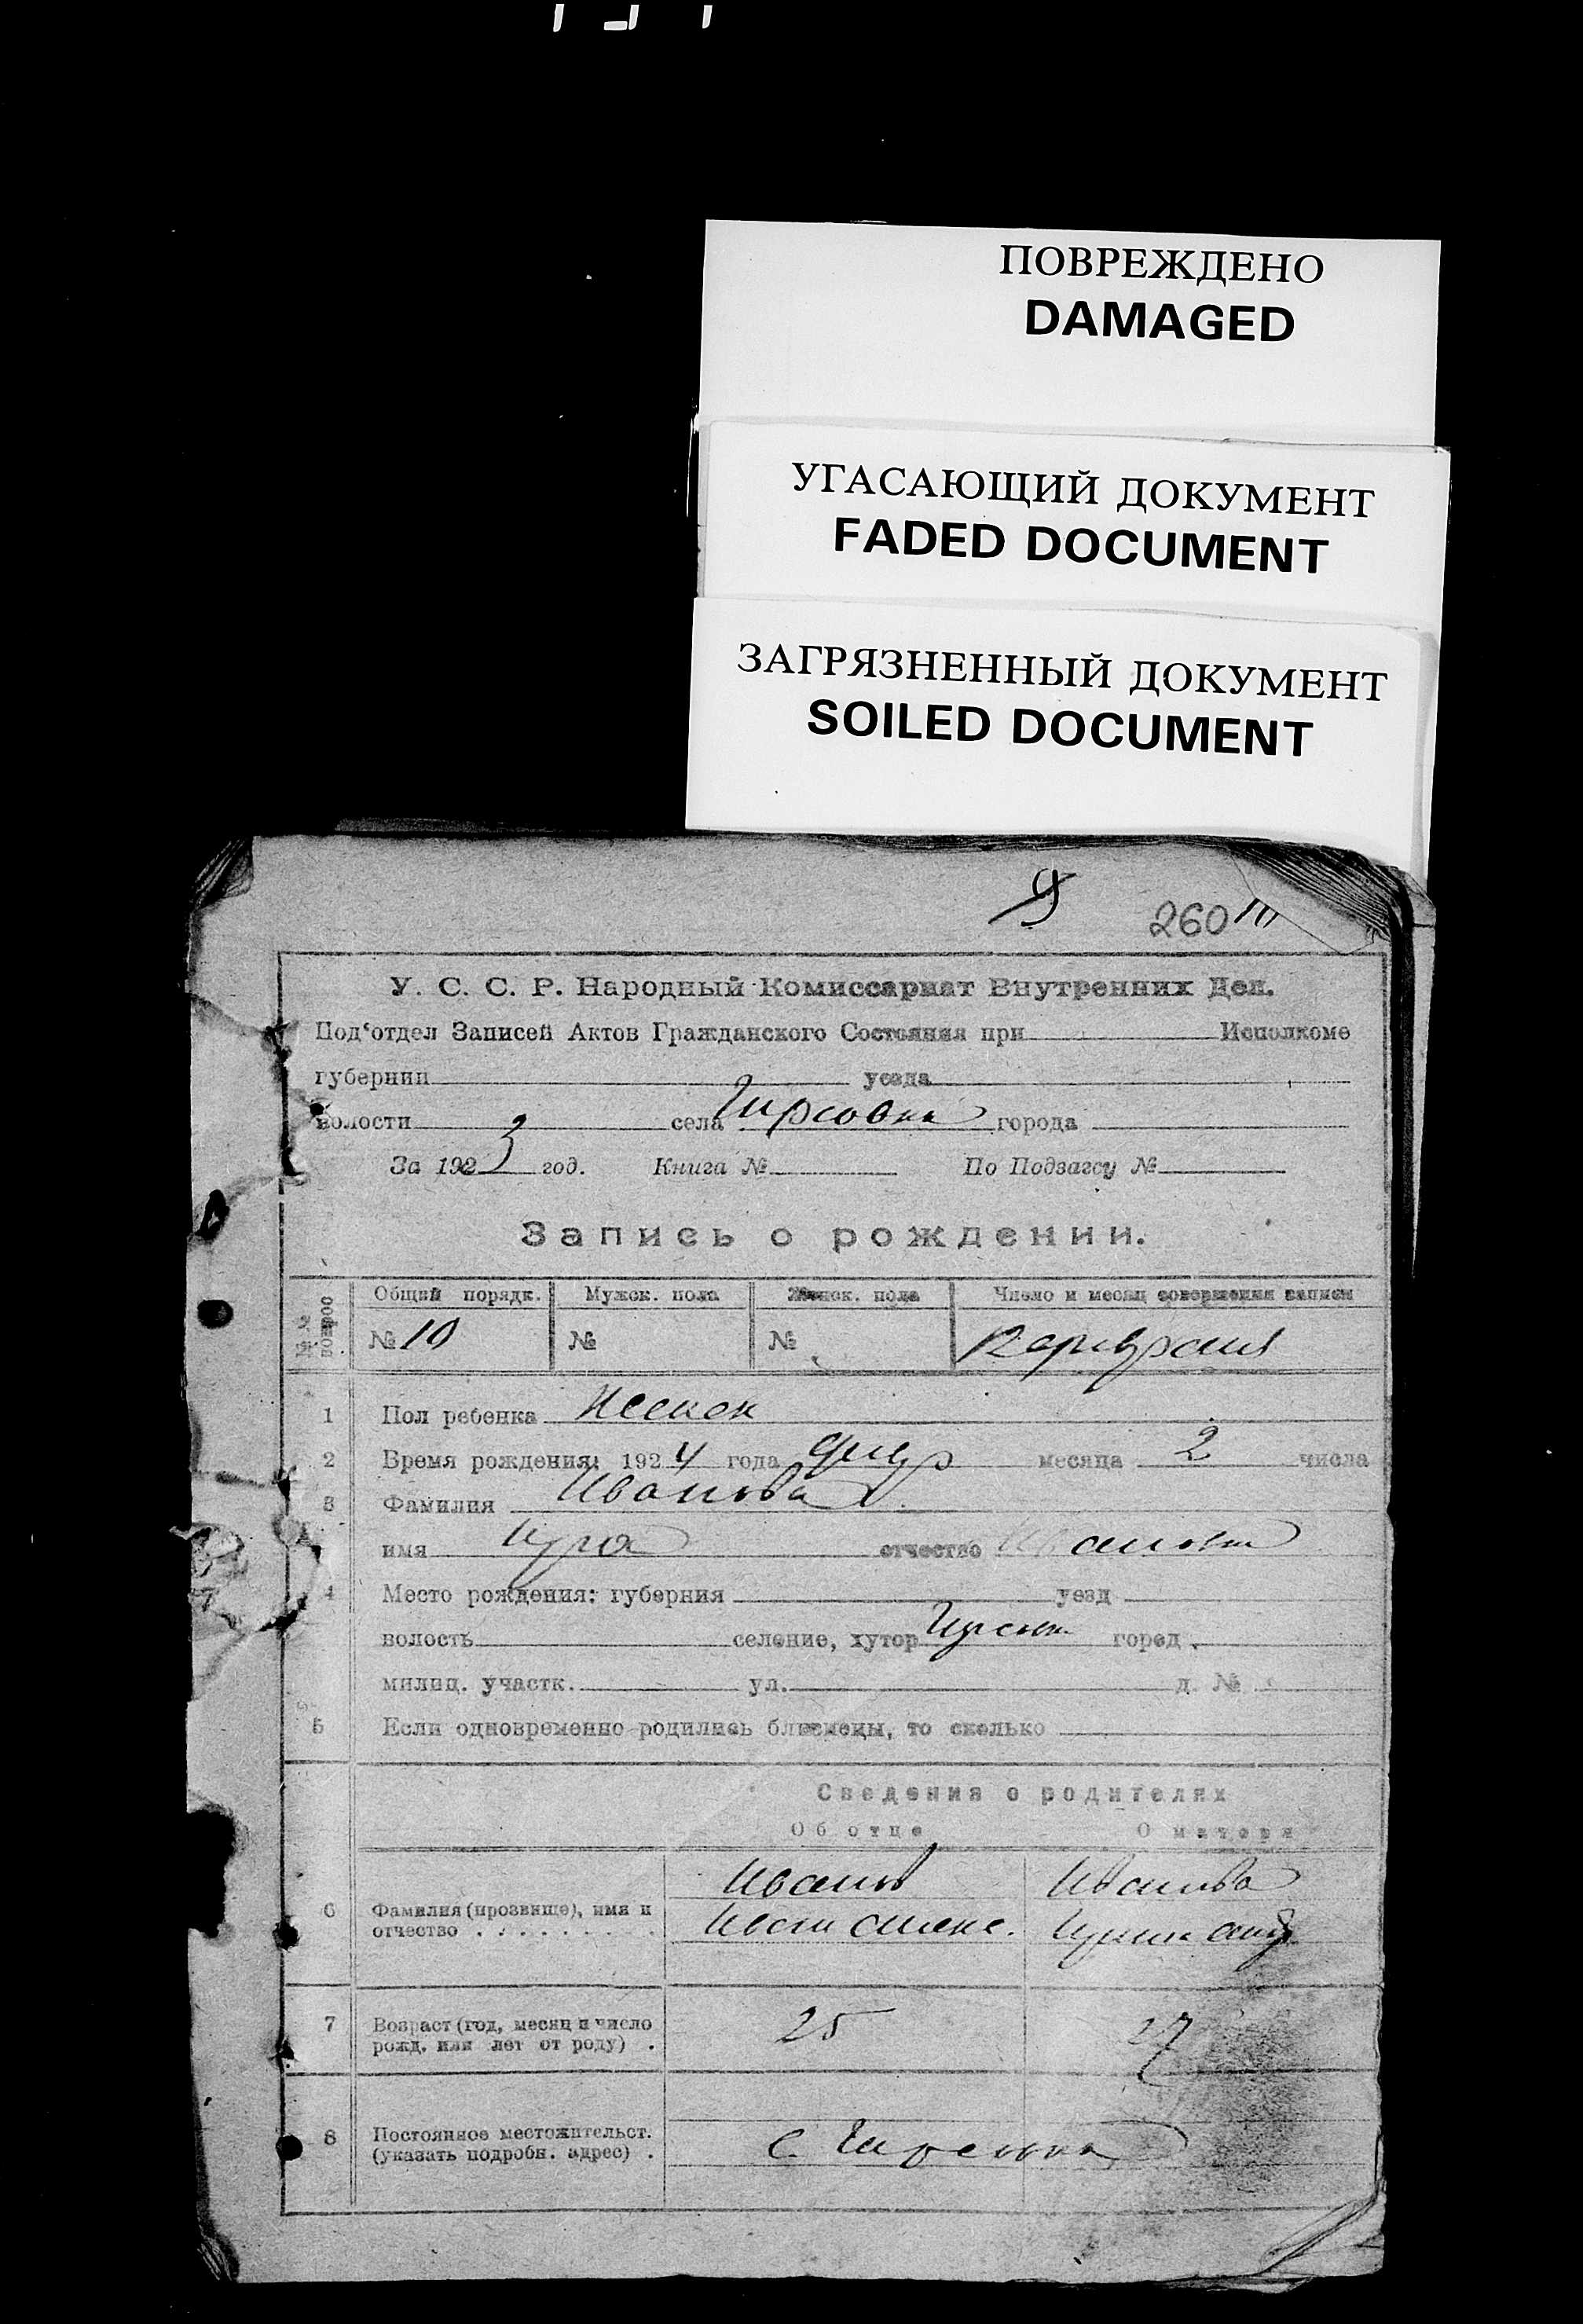 ПОВРЕЖДЕНО
DAMAGED
УГАСАЮЩИЙ ДОКУМЕНТ
FADED DOCUMENT
ЗАГРЯЗНЕННЫЙ ДОКУМЕНТ
SOILED DOCUMENT
260
У. С. С. Р. Народный Комиссариат Внутренних Дел.
Под'отдел Записей Актов Гражданского Состояния при Исполкоме
губернии уезда
волости села города
За 1923 год. Книга № По Подзагсу №
Запись о рождении.
№ № вопрос Общий порядк. Мужск. пола Женск. пола Число и месяц совершения записи
№ 10 № №
1 Пол ребенка женск
2 Время рождения: 1924 года месяца 2 числа
3 Фамилия Иванова
имя отчество
4 Место рождения: губерния уезд
волость селение, хутор город
милиц. участк. ул. д. №
5 Если одновременно родились близнецы, то сколько
Сведения о родителях
Об отце О матери
Иванов Иванова
6 Фамилия (прозвище), имя и
отчество
7 Возраст (год, месяц и число 25 27
рожд. или лет от роду) .
8 Постоянное местожительст. с.
(указать подробн. адрес) .